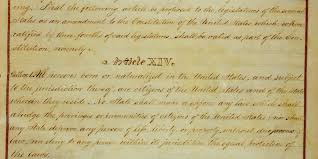 That the following article be proposed to the legislatures of the several
States as an amendment to the Constitution of the United States which, when
ratified by three fourths of said legislatures, shall be valid as part of the Con-
stitution, namely:
Article XIV.
Section 1. All persons born or naturalized in the United States, and subject
to the jurisdiction thereof, are citizens of the United States and of the State
wherein they reside. No State shall make or enforce any law which shall
abridge the privileges or immunities of citizens of the United States; nor shall
any State deprive any person of life, liberty, or property, without due process of
law; nor deny to any person within its jurisdiction the equal protection of
the laws.